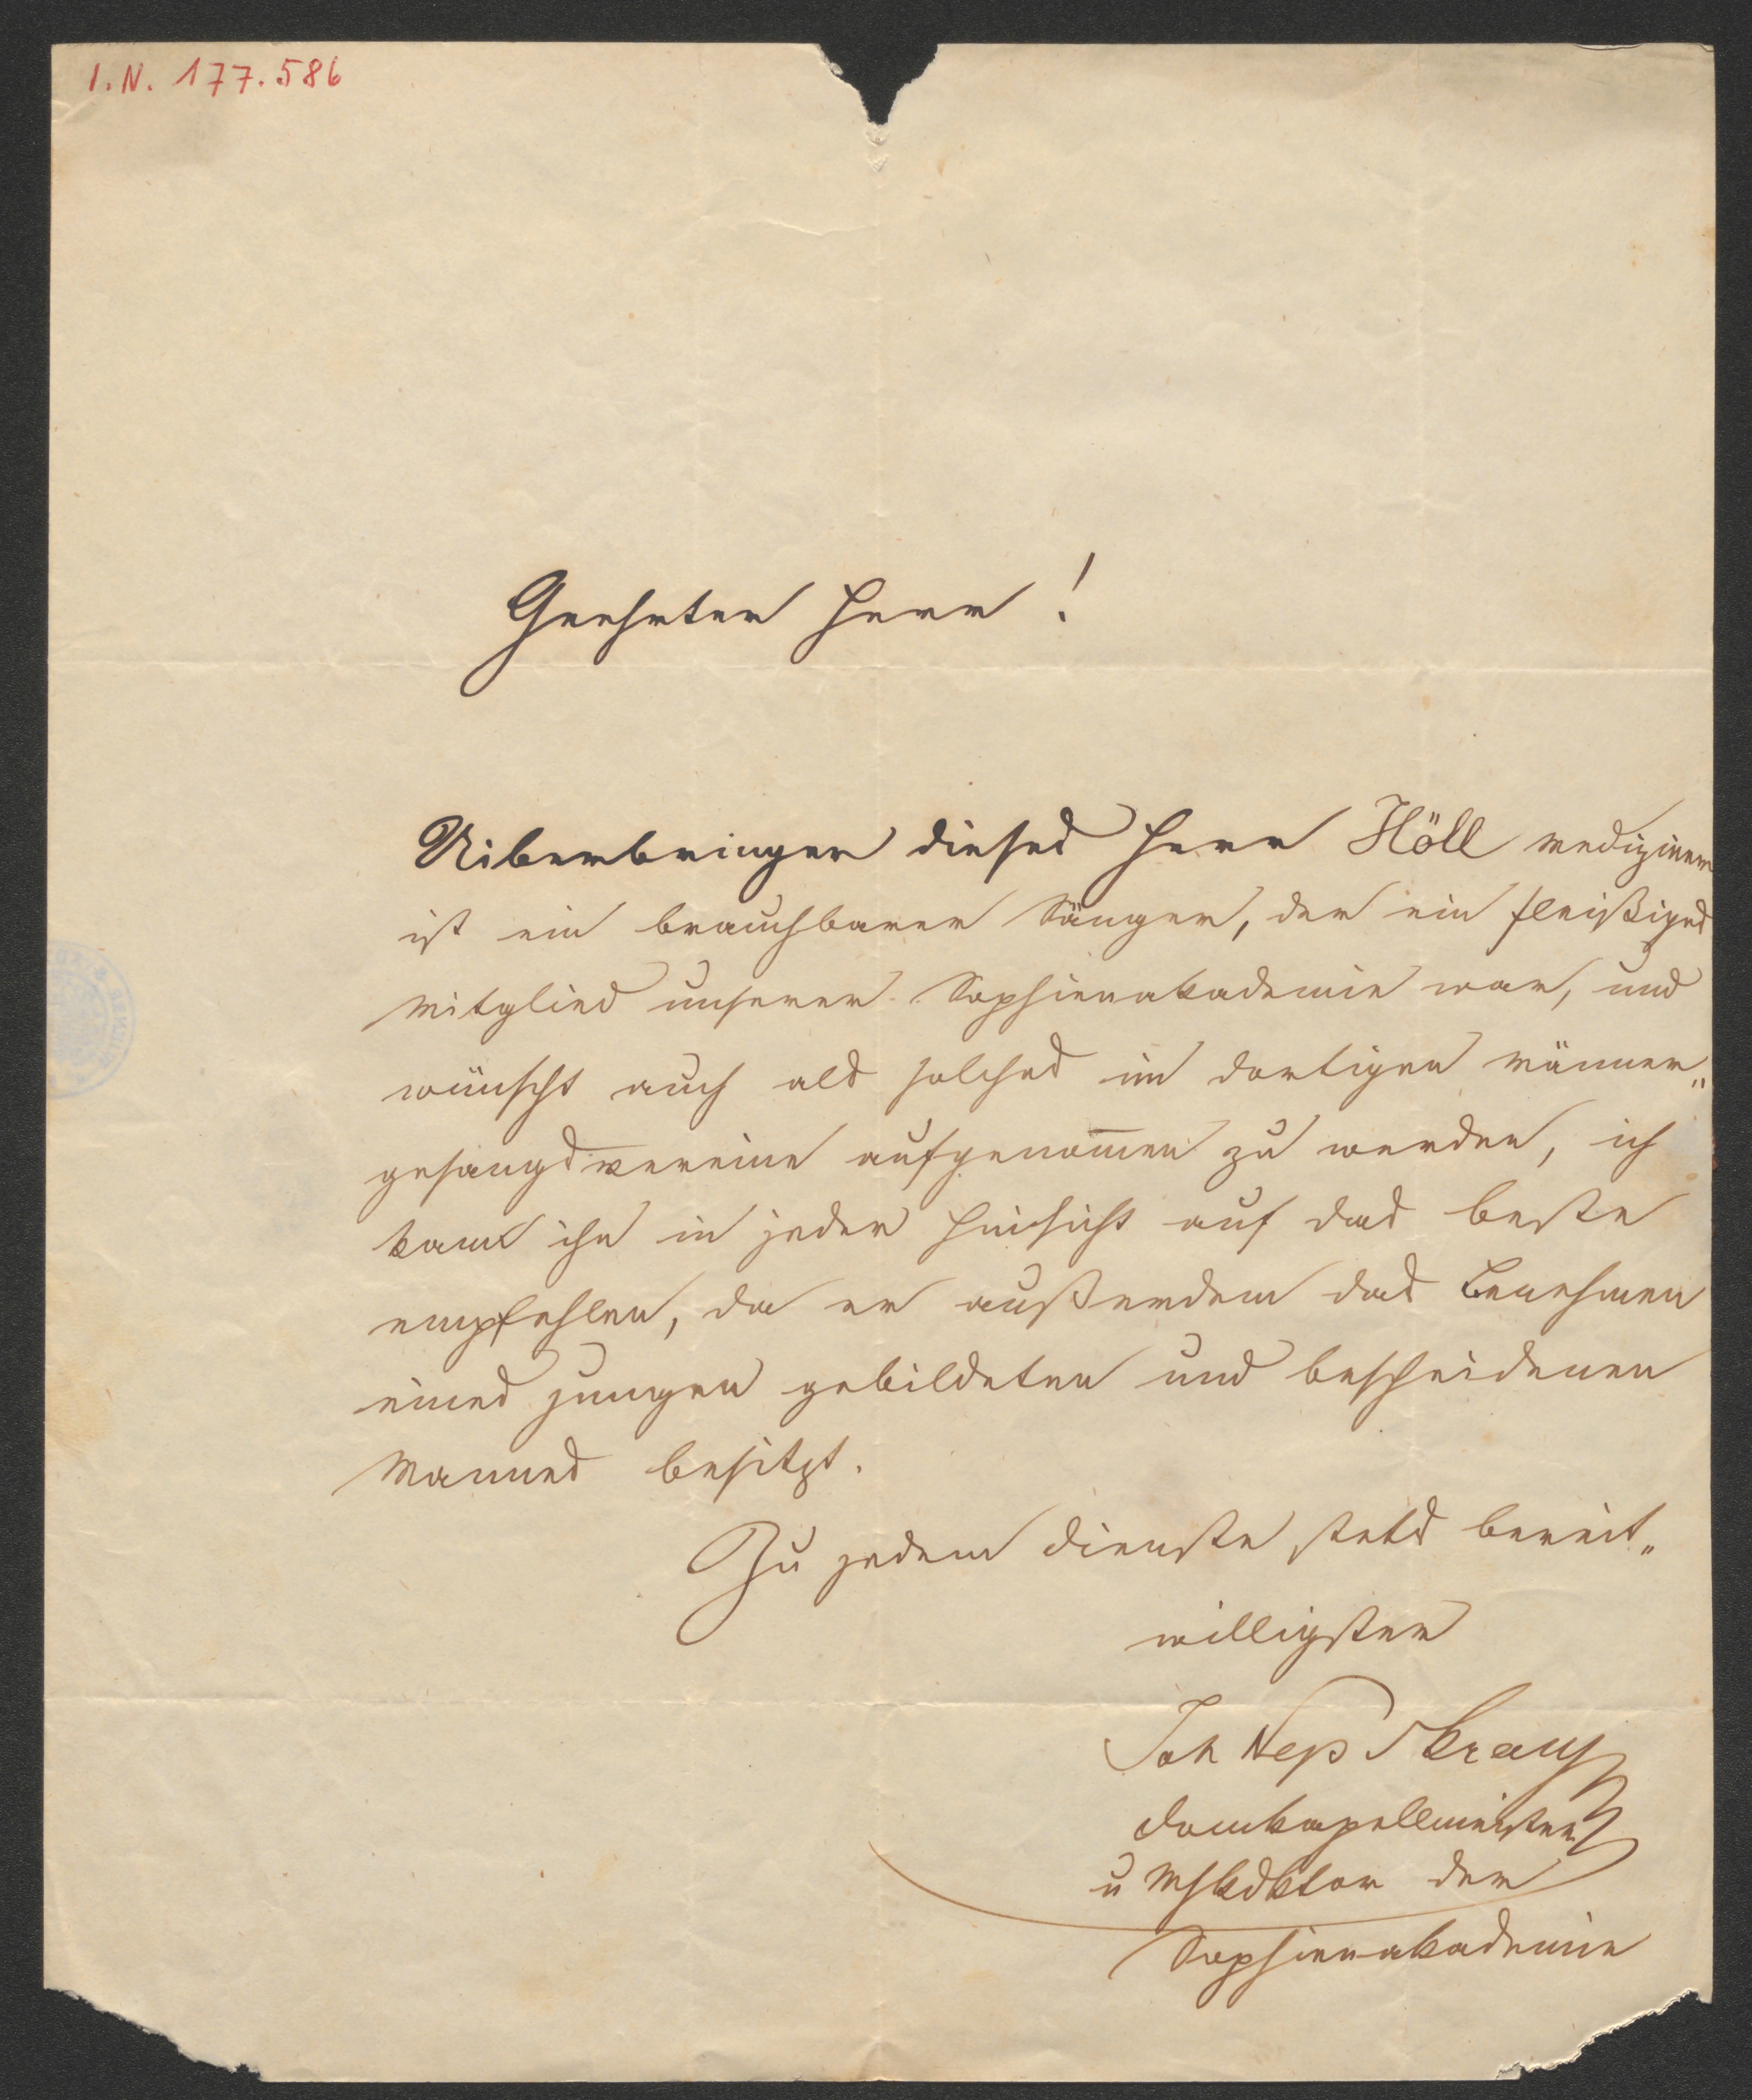 I.N. 177.586
Geehrter Herr!
Uiberbringer dieses Herr Höll Mediziner
ist ein brauchbarer Sänger, der ein fleißiges
Mitglied unserer Sophienakademie war, und
wünscht auch als solches im dortigen Männer„
gesangsvereine aufgenom̅en zu werden, ich
kann ihn in jeder Hinsicht auf das beste
empfehlen, da er außerdem das Benehmen
eines jungen gebildeten und bescheidenen
Mannes besitzt.
Zu jedem Dienste stets bereit„
willigster
Joh Nep Skraup
Domkapellmeister
u der
Sophienakademie